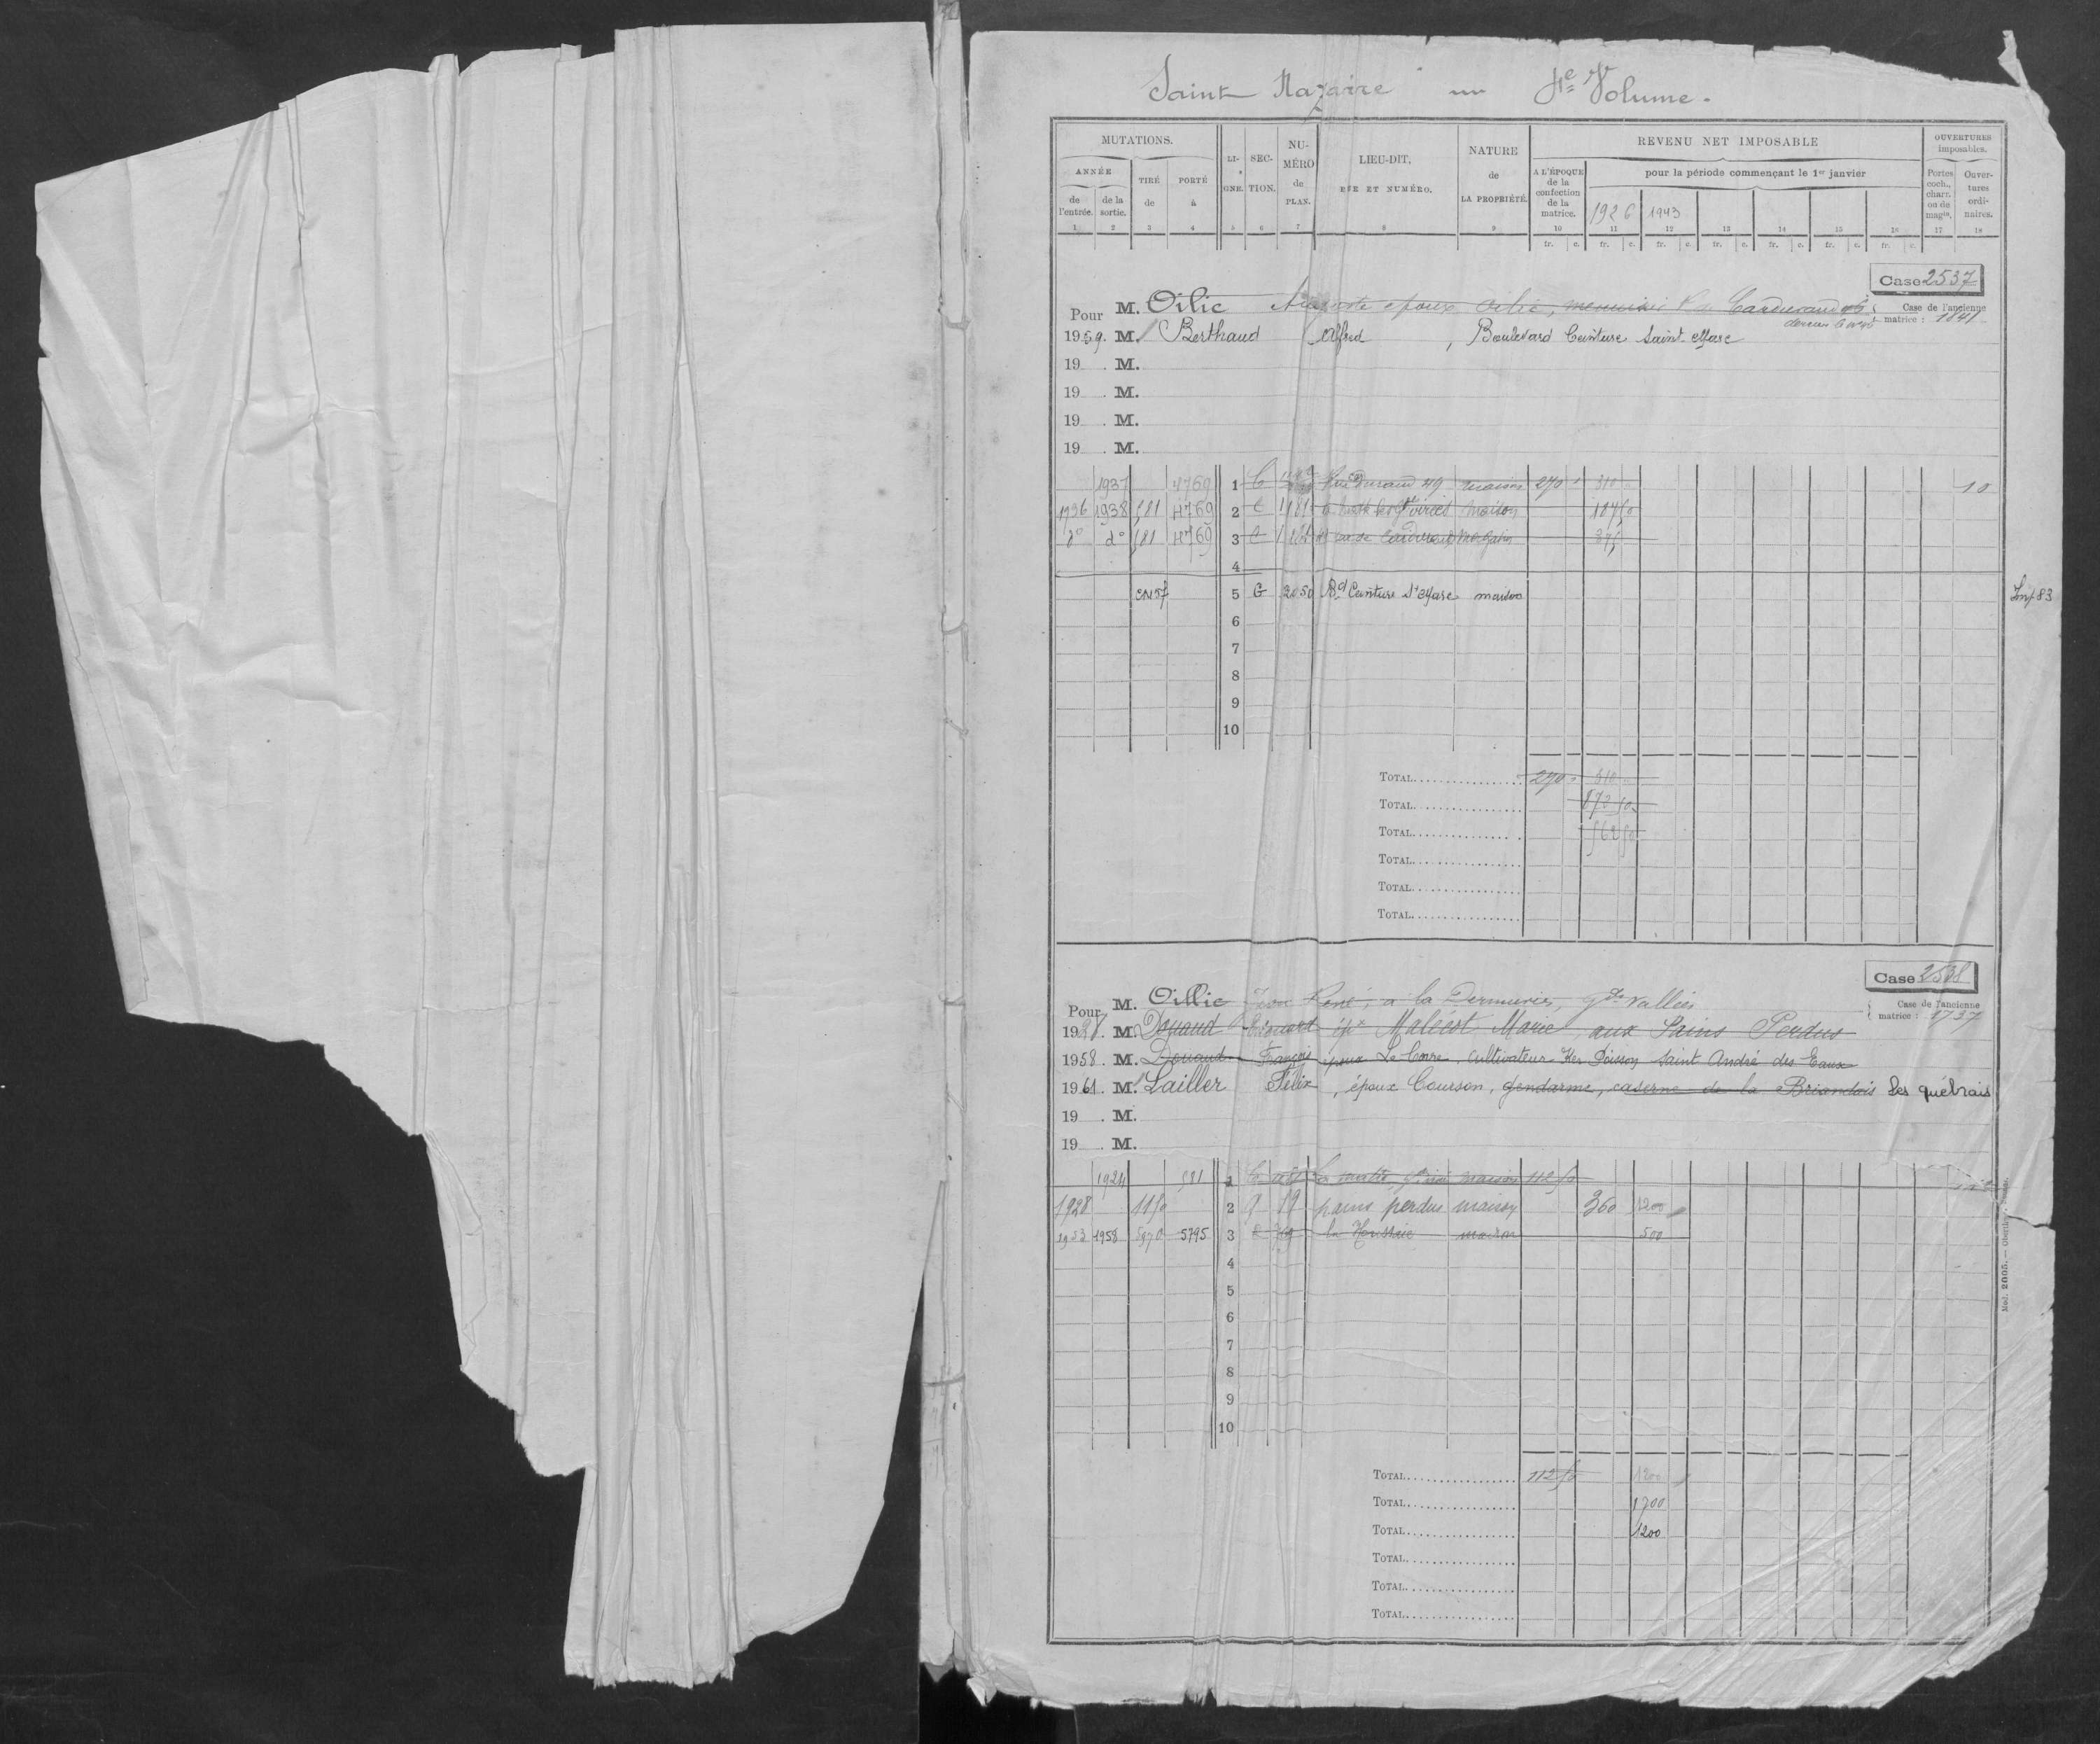 Saint Nazaire 4e Volume.
MUTATIONS.
ANNÉE
de l'entrée.
de la sortie.
TIRÉ de
PORTÉ à
LIGNE.
SECTION.
NUMÉRO de PLAN.
LIEU-DIT,
RUE ET NUMÉRO.
NATURE de LA PROPRIÉTÉ.
REVENU NET IMPOSABLE
A L'ÉPOQUE de la confection de la matrice.
pour la période commençant le 1er janvier
1926 1943
OUVERTURES imposables.
Portes coch., charr. ou de magin.
Ouvertures ordinaires.
1 2 3 4 5 6 7 8 9 10 11 12 13 14 15 16 17 18
fr. c. fr. c. fr. c. fr. c. fr. c. fr. c. fr. c.
Case 2537
Pour M. Oilic Auguste époux Oilic, menuisier
Case de l'ancienne matrice : 1841
1959. M. Berthaud Alfred, Boulevard Ceinture Saint-Marc
19 . M.
19 . M.
19 . M.
19 . M.
1937 4769 1 C 49 maison 270 310 10
1936 1938 581 4769 2 C maison 187 50
do do 581 4769 3 C magasin 375
4
CN57 5 G 2050 Bd Ceinture St Marc maison Imp 83
6
7
8
9
10
Total 270 310
Total 872 50
Total 562 50
Total
Total
Total
Case 2538
Pour M. Oillic Jean René, a la Dermurie, gde vallées
Case de l'ancienne matrice : 1737
1928. M. Douaud Edouard ép. Maléest Marie, aux Pains Perdus
1958. M. Douaud François époux Le Corre, cultivateur Ker Poisson Saint André des Eaux
1961. M. Lailler Félix, époux Courson, gendarme, caserne de la Briandais les québrais
19 . M.
19 . M.
1924 581 1 maison 112 50
1928 1150 2 G 19 pains perdus maison 360 1200
1953 1958 5970 5795 3 maison 500
4
5
6
7
8
9
10
Total 112 50 1200
Total 1700
Total 1200
Total
Total
Total
Mod. 2005.